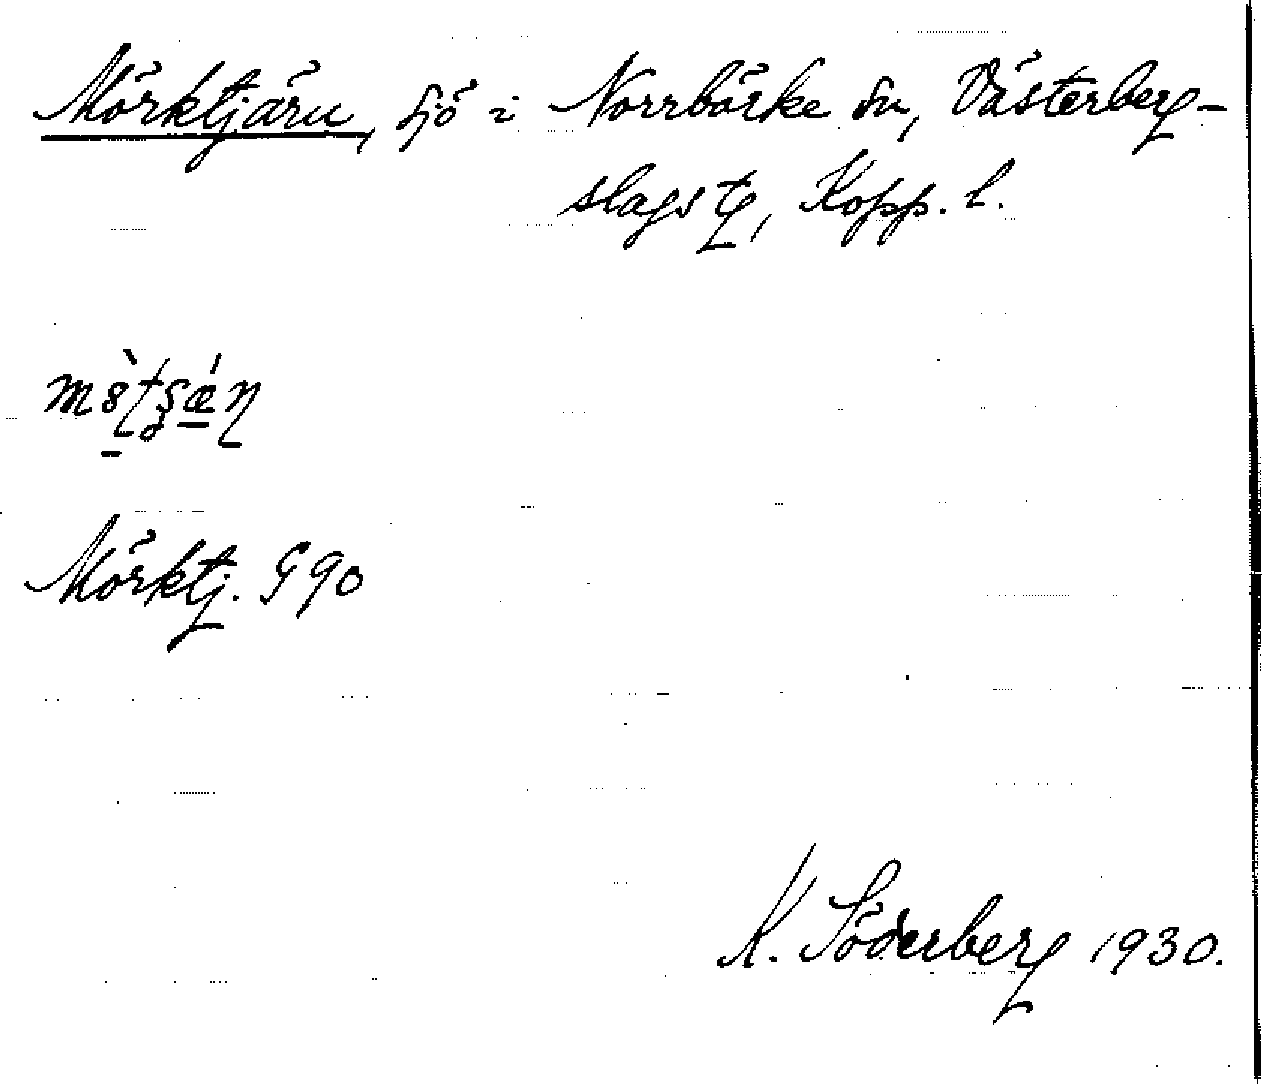 Mörktjärn, sjö i Norrbärke sn, Västerberg-
slags tg, Kopp. l.
Mörktj. G 90
K. Söderberg 1930.